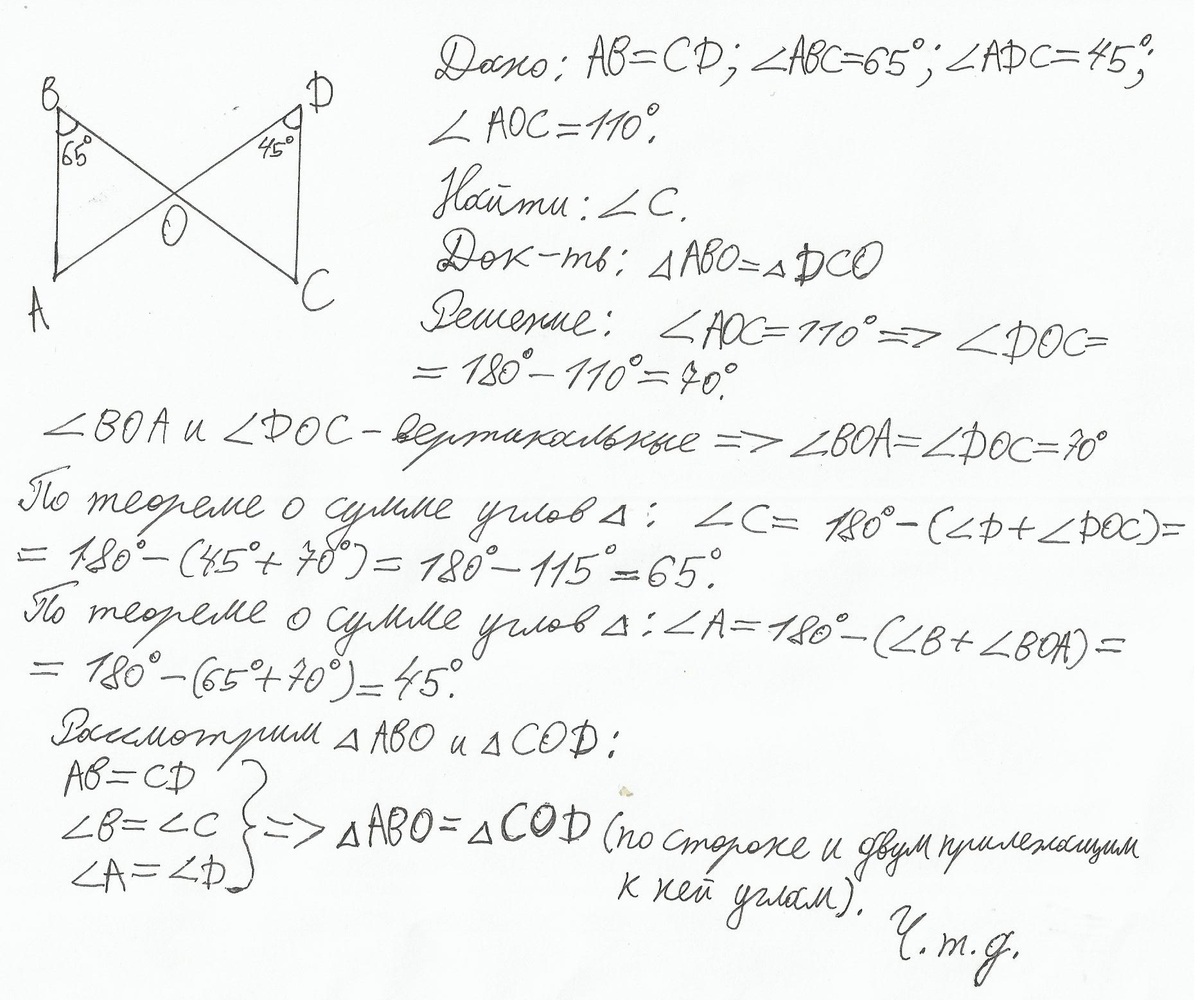 B
D
65°
45°
O
A
C
Дано: AB=CD; ∠ABC=65°; ∠ADC=45°;
∠AOC=110°.
Найти: ∠C.
Док-ть: △ABO=△DCO
Решение: ∠AOC=110° => ∠DOC=
= 180°-110°=70°.
∠BOA и ∠DOC - вертикальные => ∠BOA=∠DOC=70°
По теореме о сумме углов △: ∠C= 180°-(∠D+∠DOC)=
= 180°-(45°+70°)=180°-115°=65°.
По теореме о сумме углов △: ∠A=180°-(∠B+∠BOA)=
= 180°-(65°+70°)=45°.
Рассмотрим △ABO и △COD:
AB=CD
∠B=∠C } => △ABO=△COD (по стороне и двум прилежащим
∠A=∠D к ней углам).
Ч.т.д.